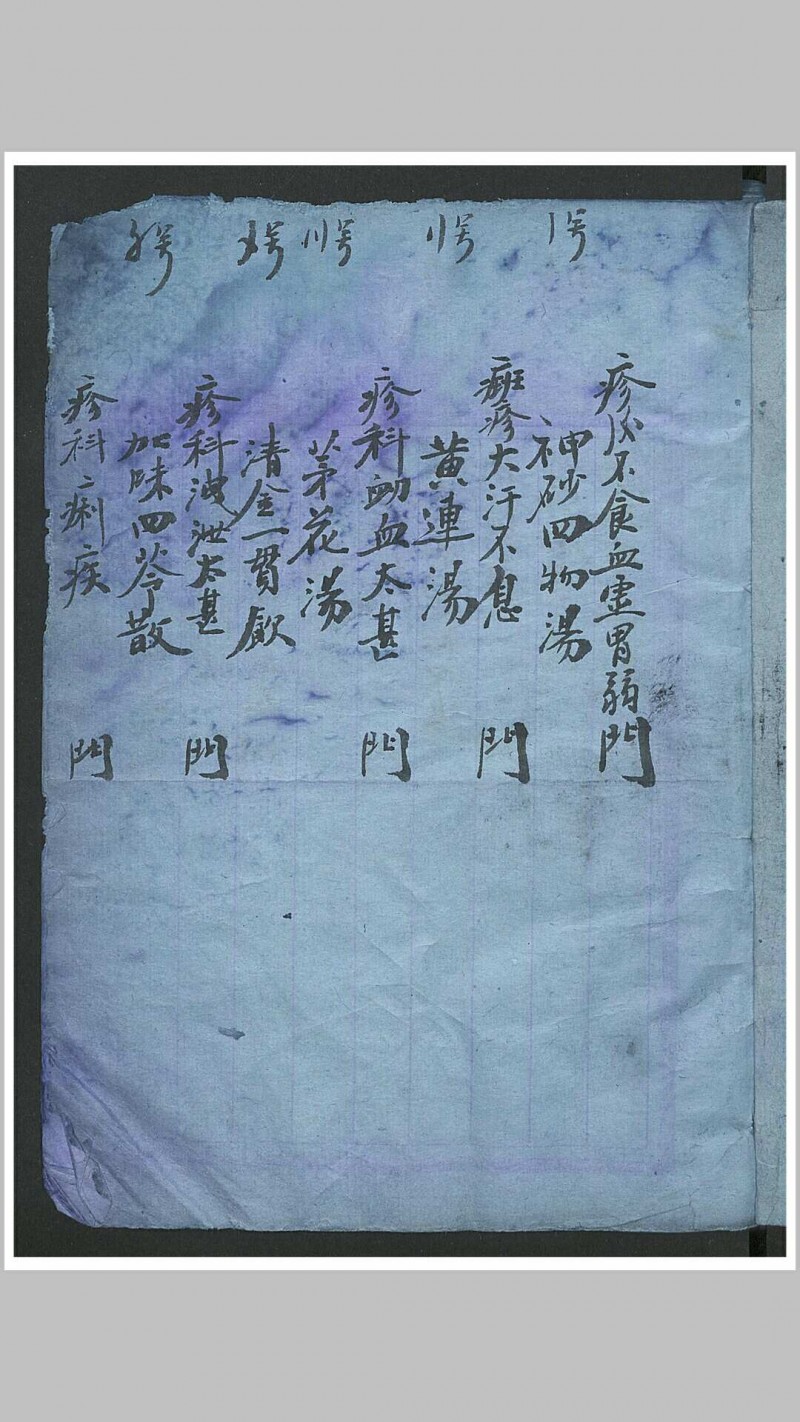 疹不食血虛胃弱門
〡号 神砂四物湯
癍疹大汗不息門
〢号 黃連湯
疹科衄血太甚門
〣号 茅花湯
〤号 清金一貫飲
疹科洩泄太甚門
〥号 加味四苓散
疹科痢疾門